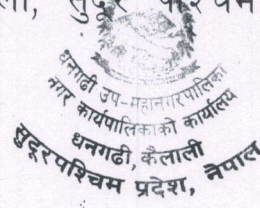 ली, सुदूर
धनगढी उप-महानगरपालिका
नगर कार्यपालिकाको कार्यालय
धनगढी, कैलाली
सुदूरपश्चिम प्रदेश, नेपाल